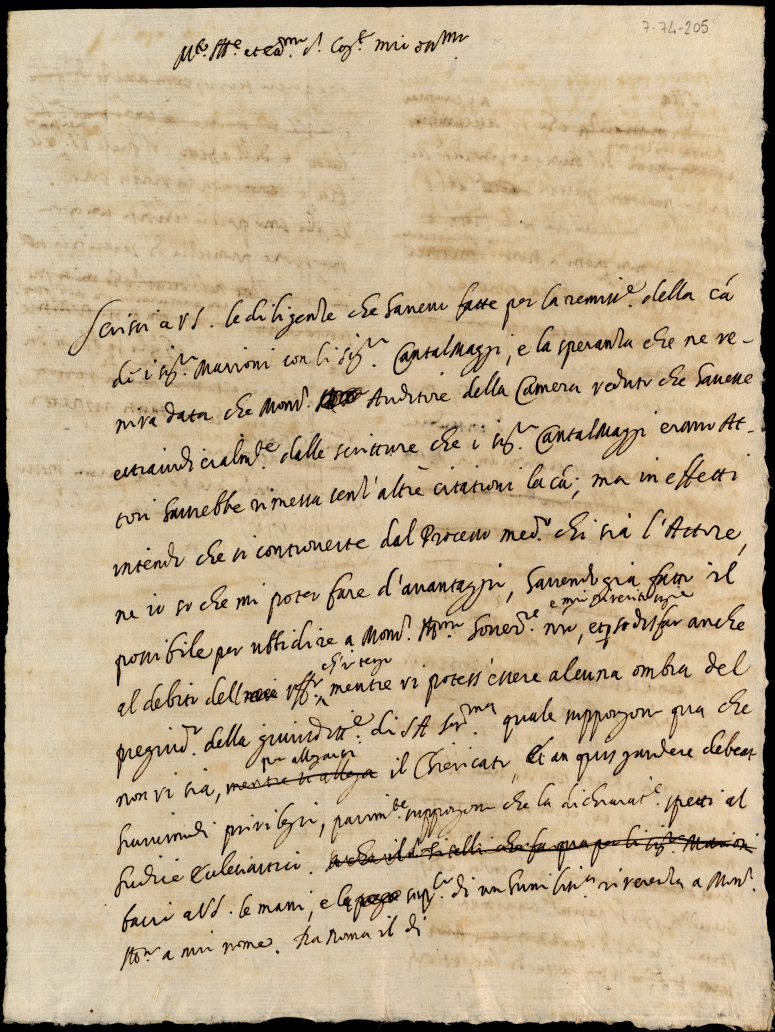 7-74-205
M.to Ill.re et ecc.mo S.r Cog.te mio oss.mo
Scrissi a V.S. le diligentie che havevo fatte per la remiss.e della cā
de i sig.ri Marioni con li sig.ri Cantalmaggi, e la speranza che ne ve-
niva data che Mons.r Auditore della Camera veduto che havesse
extraiudicialm.te dalle scritture che i sig.ri Cantalmaggi erano At-
tori haverebbe rimessa senz'altre citationi la cā; ma in effetti
intendo che si controverte dal Processo med.o chi sia l'Attore,
ne io so che mi poter fare d'avantaggio, havendo già fatto il
possibile per ubbidire a Mons.r Ill.mo e mio riverito sig.re
nro, et p sodisfar anche
al debito dell off.o ch'io tengo
mentre vi potess'essere alcuna ombra del
pregiud.o della giurisditt.e di S.A. Ser.ma quale suppongono qua che
non vi sia, mentre si allega
per allegarsi
il Chiericato, et an quis gaudere debeat
huiusmodi privilegi, parim.te suppongono che la dichiarat.e spetti al
Iudice Ecclesiastico.
bacio a V.S. le mani, e la sup.co di un humiliss.a riverenza a Mons.r
Ill.mo a mio nome. Da Roma il di